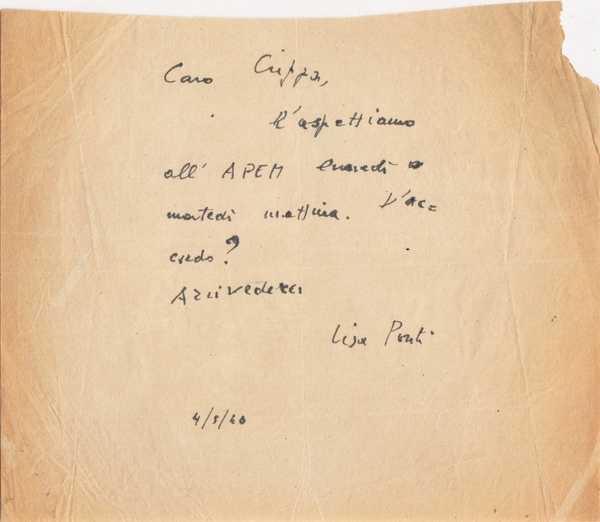 Caro Crippa,
l'aspettiamo
all' APEM lunedì o
martedì mattina. D'ac=
cordo?
Arrivederci
Lisa Ponti
4/5/40